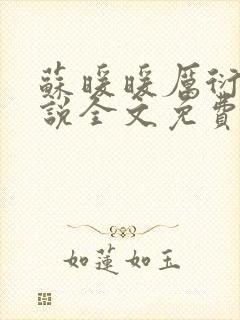 蘇暖暖厲衍
說全文免費
如蓮如玉